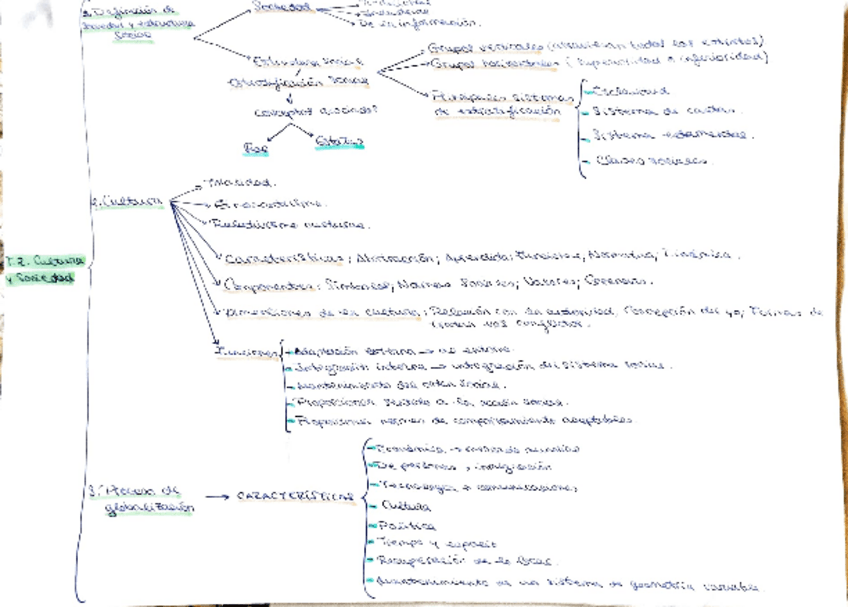 Definición de
sociedad y estructura
social
Sociedad
De la información.
Estructura social
Estratificación social
Conceptos
Rol
Estatus
Grupos verticales
Grupos horizontales (superioridad o inferioridad)
Principales sistemas
de estratificación
Esclavitud
Sistema de castas.
Sistema estamental.
Clases sociales.
T.2. Cultura
y Sociedad
2. Cultura
Etnocentrismo.
Relativismo cultural.
Características; Abstracción; Aprendida; Normativa; Dinámica.
Componentes: Símbolos; Normas Sociales; Valores; Creencias.
Dimensiones de la cultura; Relación con la autoridad, Concepción del yo; Formas de
conflictos.
Funciones
Adaptación externa →
Integración interna → integración del sistema social.
Mantenimiento del orden social.
Proporcionar sentido a la acción social.
Proporcionar normas de comportamiento aceptables.
3. Proceso de
globalización → CARACTERÍSTICAS
Económica → mercado mundial
De personas, inmigración
Tecnología → comunicaciones
Cultura
Política
Tiempo y espacio
Recuperación de lo local.
Mantenimiento de un sistema de geometría variable.